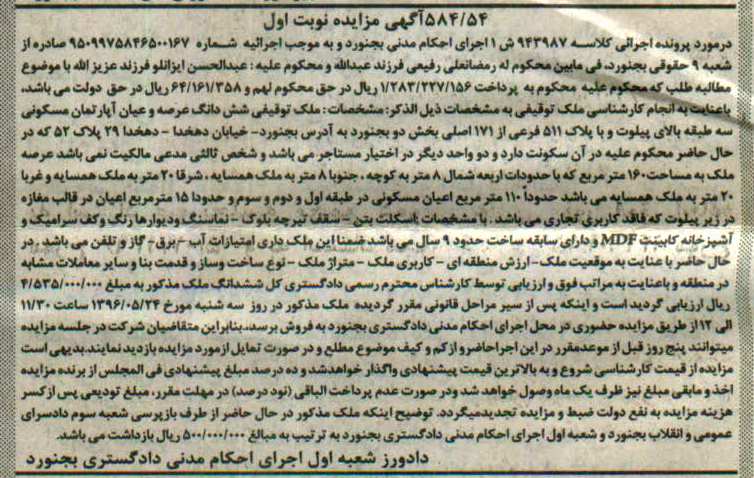 ۵۸۴/۵۴آگهی مزایده نوبت اول
درمورد پرونده اجرائی کلاسه ۹۴۳۹۸۷ ش ۱ اجرای احکام مدنی بجنورد و به موجب اجرائیه شماره ۹۵۰۹۹۷۵۸۴۶۵۰۰۱۶۷ صادره از
شعبه ۹ حقوقی بجنورد، فی مابین محکوم له رمضانعلی رفیعی فرزند عبدالله و محکوم علیه : عبدالحسن ایزانلو فرزند عزیز الله با موضوع
مطالبه طلب که محکوم علیه محکوم به پرداخت ۱/۲۸۳/۲۲۷/۱۵۶ ریال در حق محکوم لهم و ۶۴/۱۶۱/۳۵۸ ریال در حق دولت می باشد،
باعنایت به انجام کارشناسی ملک توقیفی به مشخصات ذیل الذکر: مشخصات : ملک توقیفی شش دانگ عرصه و عیان آپارتمان مسکونی
سه طبقه بالای پیلوت و با پلاک ۵۱۱ فرعی از ۱۷۱ اصلی بخش دو بجنورد به آدرس بجنورد- خیابان دهخدا - دهخدا ۲۹ پلاک ۵۲ که در
حال حاضر محکوم علیه در آن سکونت دارد و دو واحد دیگر در اختیار مستاجر می باشد و شخص ثالثی مدعی مالکیت نمی باشد عرصه
ملک به مساحت۱۶۰ متر مربع که با حدودات اربعه شمال ۸ متر به کوچه ، جنوبا ۸ متر به ملک همسایه ، شرقا ۲۰ متر به ملک همسایه و غربا
۲۰ متر به ملک همسایه می باشد حدوداً ۱۱۰ متر مربع اعیان مسکونی در طبقه اول و دوم و سوم و حدودا ۱۵ مترمربع اعیان در قالب مغازه
در زیر پیلوت که فاقد کاربری تجاری می باشد . با مشخصات :اسکلت بتن - سقف تیرچه بلوک - نماسنگ ودیوارها رنگ وکف سرامیک و
آشپزخانه کابینت MDF و دارای سابقه ساخت حدود ۹ سال می باشد ضمنا این ملک داری امتیازات آب - برق- گاز و تلفن می باشد . در
حال حاضر با عنایت به موقعیت ملک- ارزش منطقه ای - کاربری ملک - متراژ ملک - نوع ساخت وساز و قدمت بنا و سایر معاملات مشابه
در منطقه و باعنایت به مراتب فوق و ارزیابی توسط کارشناس محترم رسمی دادگستری کل ششدانگ ملک مذکور به مبلغ ۴/۵۳۵/۰۰۰/۰۰۰
ریال ارزیابی گردید است و اینکه پس از سیر مراحل قانونی مقرر گردیده ملک مذکور در روز سه شنبه مورخ ۱۳۹۶/۰۵/۲۴ ساعت ۱۱/۳۰
الی ۱۲ از طریق مزایده حضوری در محل اجرای احکام مدنی دادگستری بجنورد به فروش برسد، بنابراین متقاضیان شرکت در جلسه مزایده
میتوانند پنج روز قبل از موعدمقرر در این اجراحاضر و از کم و کیف موضوع مطلع و در صورت تمایل ازمورد مزایده بازدید نمایند. بدیهی است
مزایده از قیمت کارشناسی شروع و به بالاترین قیمت پیشنهادی واگذار خواهدشد و ده درصد مبلغ پیشنهادی فی المجلس از برنده مزایده
اخذ و مابقی مبلغ نیز ظرف یک ماه وصول خواهد شد ودر صورت عدم پرداخت الباقی (نود درصد) در مهلت مقرر، مبلغ تودیعی پس از کسر
هزینه مزایده به نفع دولت ضبط و مزایده تجدیدمیگردد. توضیح اینکه ملک مذکور در حال حاضر از طرف بازپرسی شعبه سوم دادسرای
عمومی و انقلاب بجنورد و شعبه اول اجرای احکام مدنی دادگستری بجنورد به ترتیب به مبالغ ۵۰۰/۰۰۰/۰۰۰ ریال بازداشت می باشد.
دادورز شعبه اول اجرای احکام مدنی دادگستری بجنورد